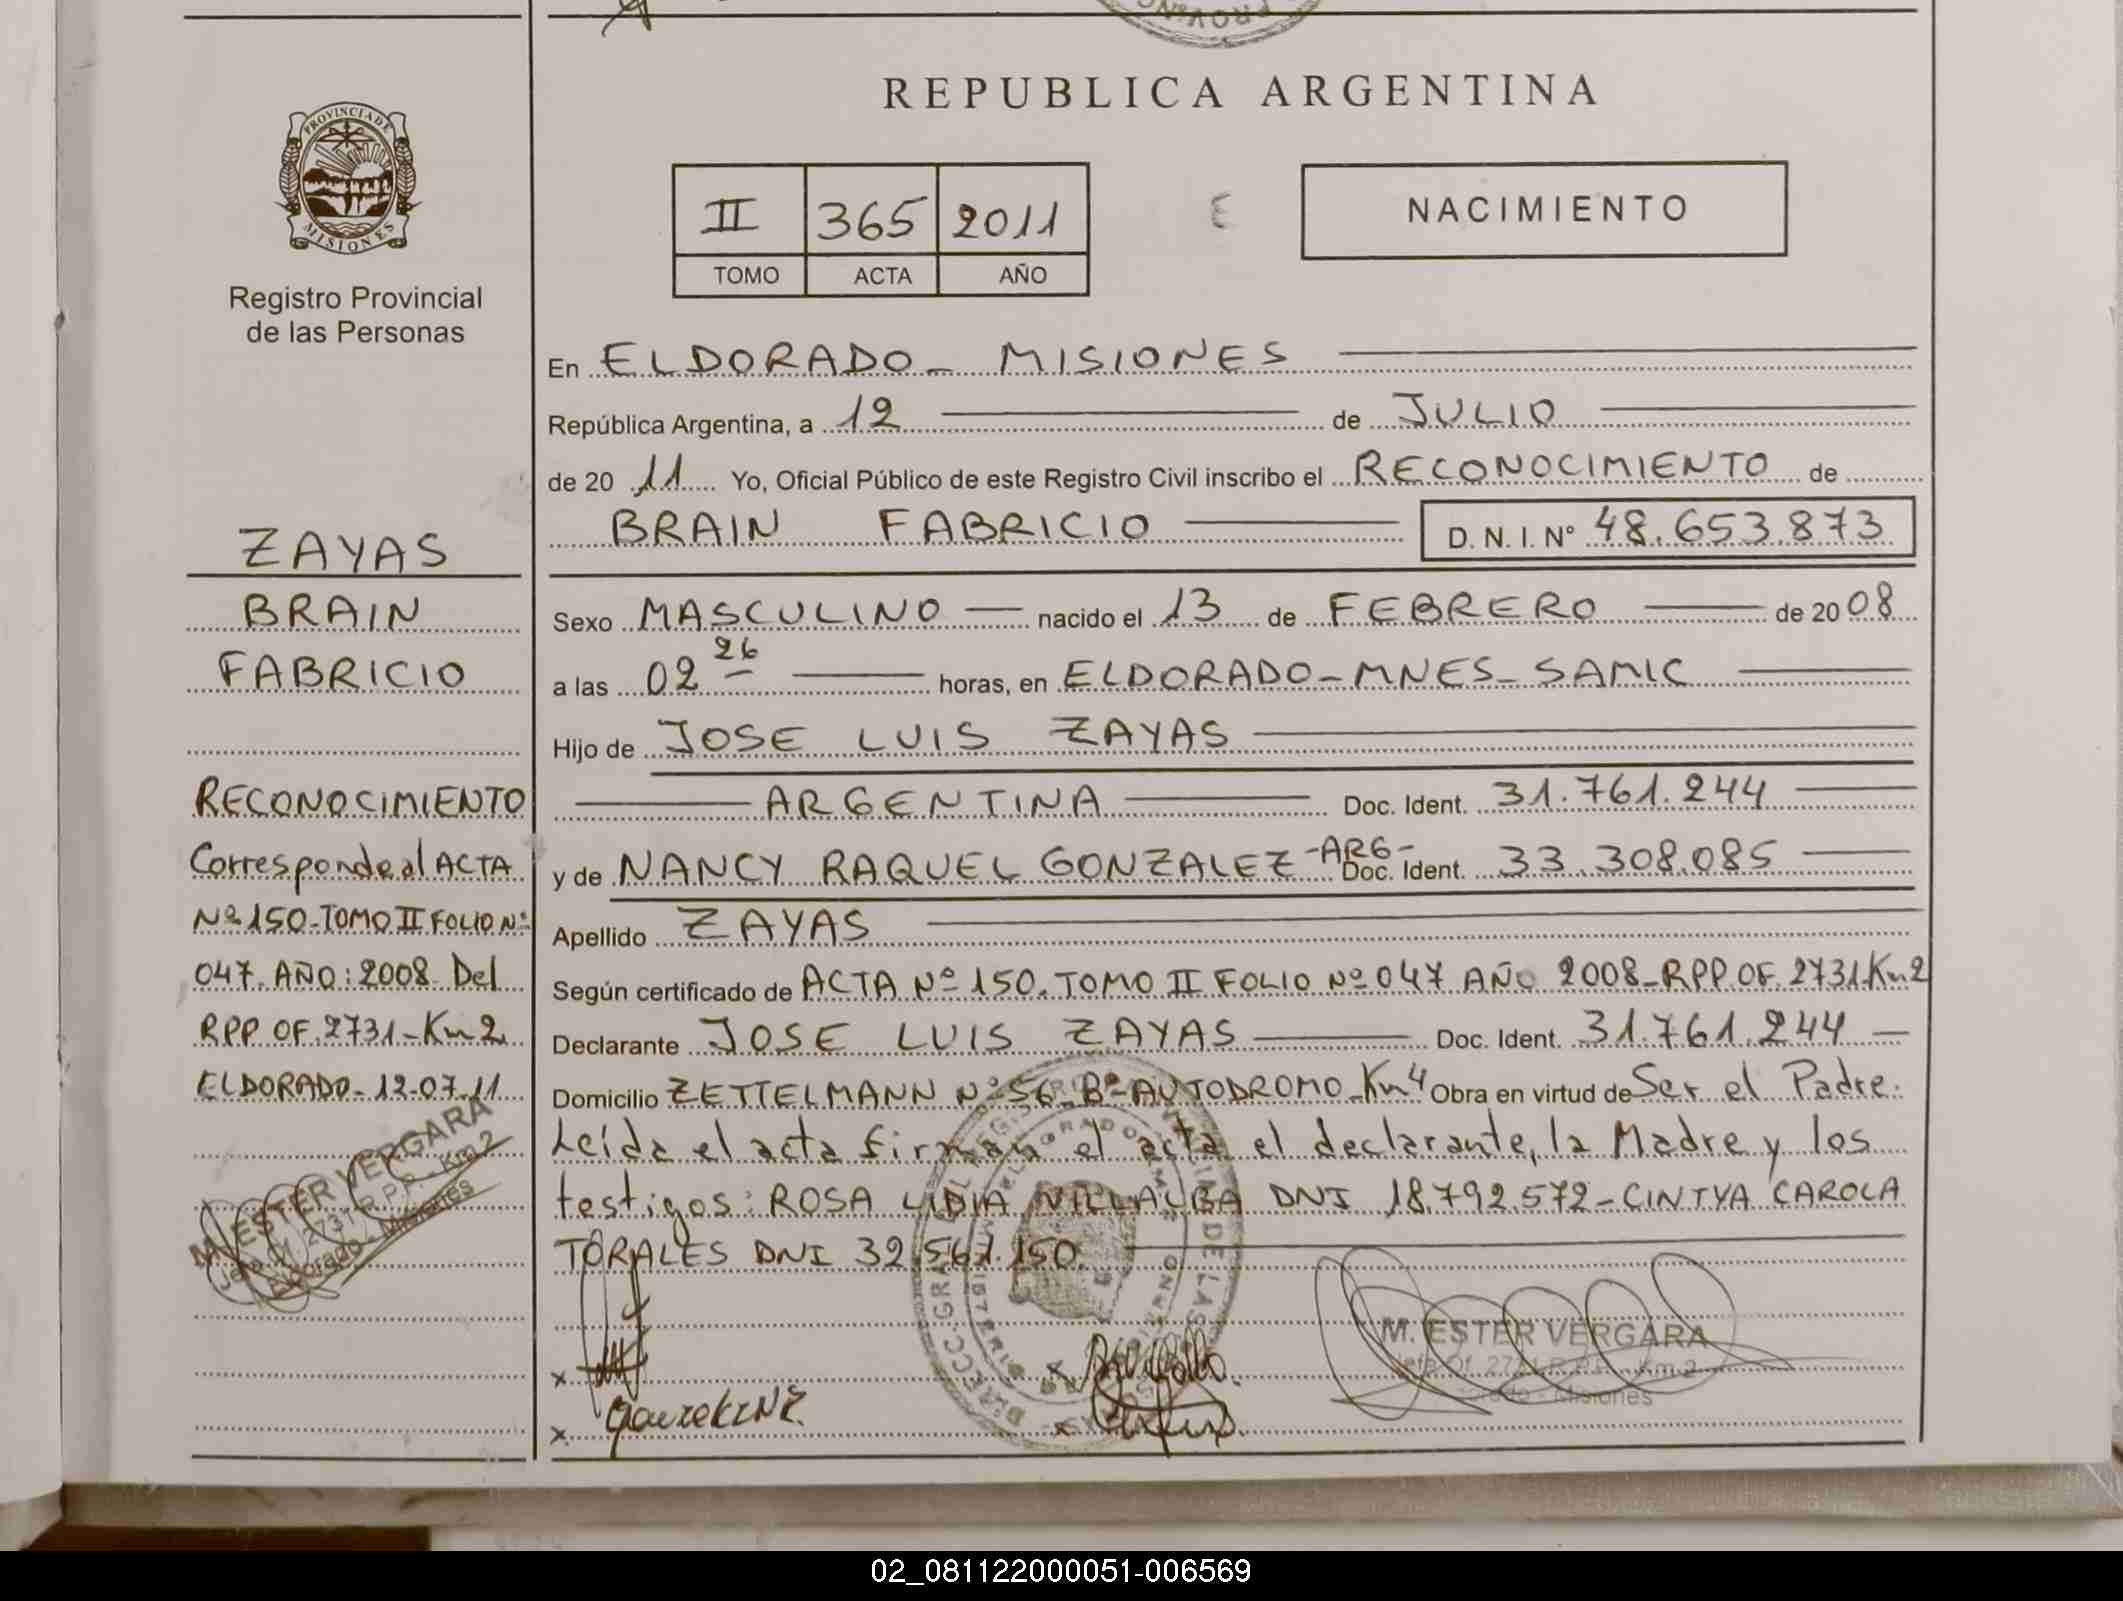 REPUBLICA ARGENTINA
PROVINCIA DE
MISIONES
Registro Provincial
de las Personas
II 365 2011
TOMO ACTA AÑO
NACIMIENTO
En ELDORADO - MISIONES
República Argentina, a 12 de JULIO
de 20 11 Yo, Oficial Público de este Registro Civil inscribo el RECONOCIMIENTO de
BRAIN FABRICIO D. N. I. Nº 48.653.873
Sexo MASCULINO nacido el 13 de FEBRERO de 20 08
a las 02 26 horas, en ELDORADO-MNES-SAMIC
Hijo de JOSE LUIS ZAYAS
ARGENTINA Doc. Ident. 31.761.244
y de NANCY RAQUEL GONZALEZ -ARG- Doc. Ident. 33.308.085
Apellido ZAYAS
Según certificado de ACTA Nº 150. TOMO II FOLIO Nº 047 AÑO 2008-RPP.OF.2731-Km2
Declarante JOSE LUIS ZAYAS Doc. Ident. 31.761.244
Domicilio ZETTELMANN Nº 56-Bº AUTODROMO-Km4 Obra en virtud de Ser el Padre.
Leída el acta firman el acta el declarante, la Madre y los
testigos: ROSA LIDIA VILLALBA DNI 18.792.572-CINTYA CAROLA
TORALES DNI 32.561.150.
M. ESTER VERGARA
Jefa Of. 2731 R.P.P. - Km 2
Eldorado - Misiones
ZAYAS
BRAIN
FABRICIO
RECONOCIMIENTO
Corresponde al ACTA
Nº 150-TOMO II FOLIO Nº
047. AÑO: 2008. Del
RPP OF. 2731-Km2
ELDORADO-12-07-11
M. ESTER VERGARA
Jefa Of. 2731 R.P.P. - Km 2
Eldorado - Misiones
02_081122000051-006569